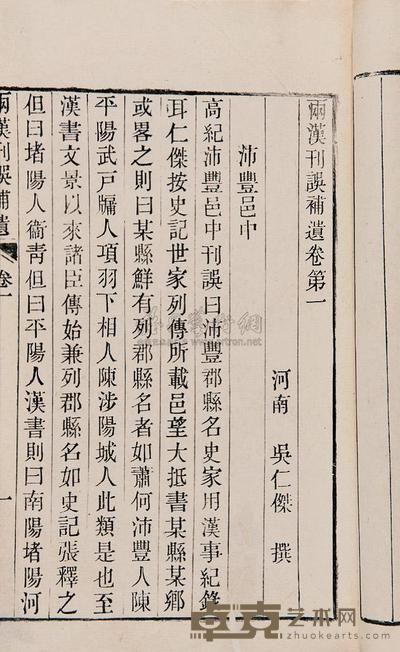 兩漢刊誤補遺卷第一
河南　吳仁傑　撰
沛豐邑中
高紀沛豐邑中刊誤曰沛豐郡縣名史家用漢事紀錄
耳仁傑按史記世家列傳所載邑望大抵書某縣某鄉
或畧之則曰某縣鮮有列郡縣名者如蕭何沛豐人陳
平陽武戸牖人項羽下相人陳涉陽城人此類是也至
漢書文景以來諸臣傳始兼列郡縣名如史記張釋之
但曰堵陽人衞青但曰平陽人漢書則曰南陽堵陽河
兩漢刊誤補遺　卷一　一
卓克艺术网
zhuokearts.com